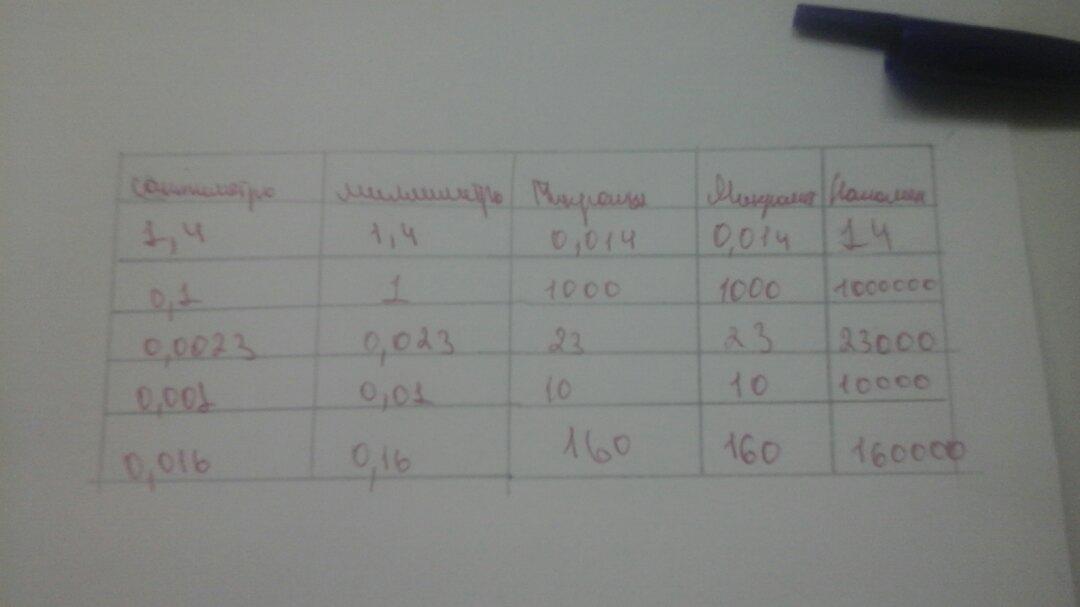 сантиметры миллиметры Микроны Микромет Наномет
1,4 1,4 0,014 0,014 14
0,1 1 1000 1000 1000000
0,0023 0,023 23 23 23000
0,001 0,01 10 10 10000
0,016 0,16 160 160 160000